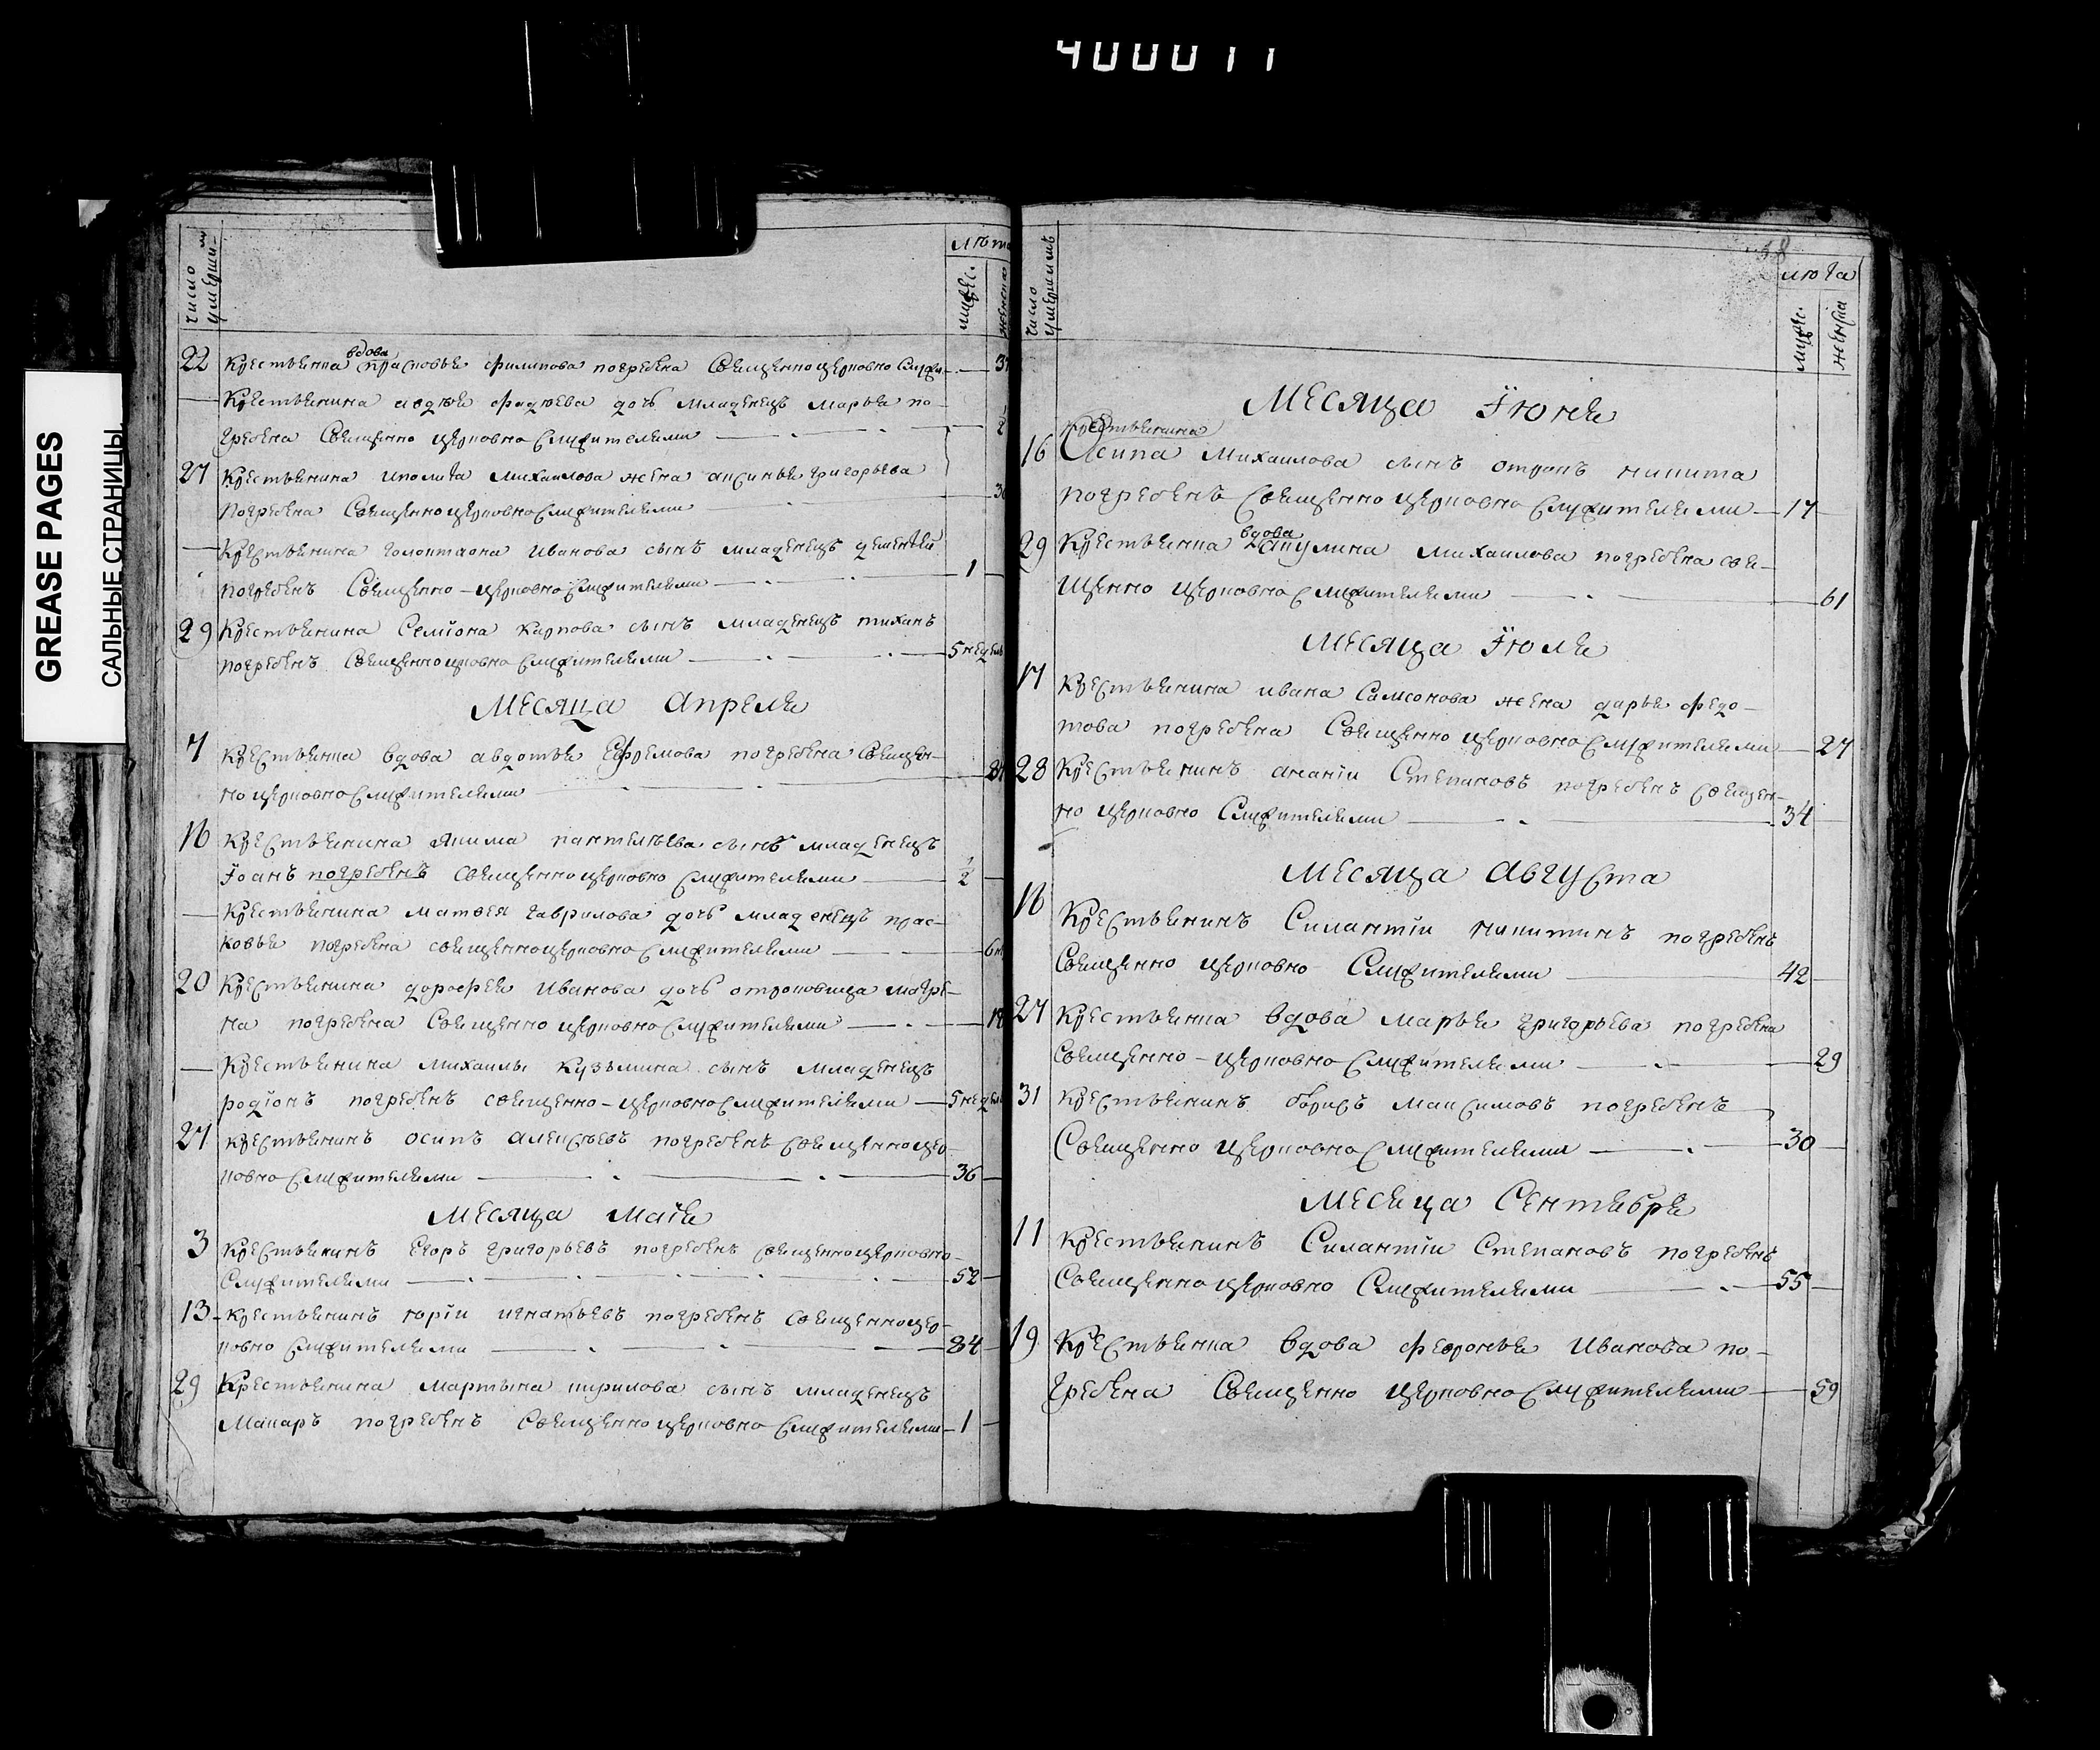 400011
GREASE PAGES
САЛЬНЫЕ СТРАНИЦЫ
число умерши
лѣта
мужес.
женска
22 Крестьянка вдова Прасковья филипова погребена Священноцерковно Служи-
Крестьянина авдѣя фадѣева дочь младенецъ марья по
гребена Священно церковно служителями 2
27 Крестьянина иполита михаилова жена аксинья григорьева
Погребена Священноцерковнослужителями
Крестьянина галактиона иванова сынъ младенецъ дементїй
погребенъ Священно-церковнослужителями 1
29 Крестьянина Семїона Карпова сынъ младенецъ тихонъ
погребенъ Священноцерковно служителями 5 недель
Месяца Апреля
7 Крестьянка вдова авдотья Ефремова погребена Священ-
но церковно служителями
16 Крестьянина Якима пантелѣева сынъ младенецъ
Їоанъ погребенъ священноцерковно служителями 1/2
Крестьянина матвея гаврилова дочь младенецъ прас-
ковья погребена священноцерковно служителями
20 Крестьянина дорофея Иванова дочь отроковица матре-
на погребена Священно церковно служителями
Крестьянина михаилы кузьмина сынъ младенецъ
родїонъ погребенъ священно-церковнослужителями 5 недель
27 крестьянинъ осипъ алексѣевъ погребенъ священноцер-
ковно служителями 36
Месяца Маїя
3 Крестьянинъ Егоръ григорьевъ погребенъ священноцерковно-
Служителями 52
13 Крестьянинъ юрїи игнатьевъ погребенъ священноцер-
ковно служителями 84
29 Крестьянина мартына кирилова сынъ младенецъ
Макаръ погребенъ Священноцерковно служителями 1
число умершихъ
38
люта
мужес.
женска
Месяца Їюня
Крестьянина
16 Осипа Михаилова сынъ отрокъ никита
погребенъ Священно церковно служителями 17
29 Крестьянка вдова акулина михаилова погребена свя-
щенно церковно служителями 61
Месяца Їюля
17 Крестьянина ивана Самсонова жена дарья федо-
това погребена Священно церковно служителями 27
28 Крестьянинъ ананїи Степановъ погребенъ священ-
но церковно Служителями 34
Месяца Августа
16 Крестьянинъ Силантїи никитинъ погребенъ
Священно церковно Служителями 42
27 Крестьянка вдова Марья григорьева погребена
Священно-церковно служителями 29
31 Крестьянинъ борисъ максимовъ погребенъ
Священно церковно служителями 30
Месяца Сентября
11 Крестьянинъ Силантїи Степановъ погребенъ
Священно церковно Служителями 55
19 Крестьянка вдова февронья Иванова по-
гребена Священно церковно служителями 59